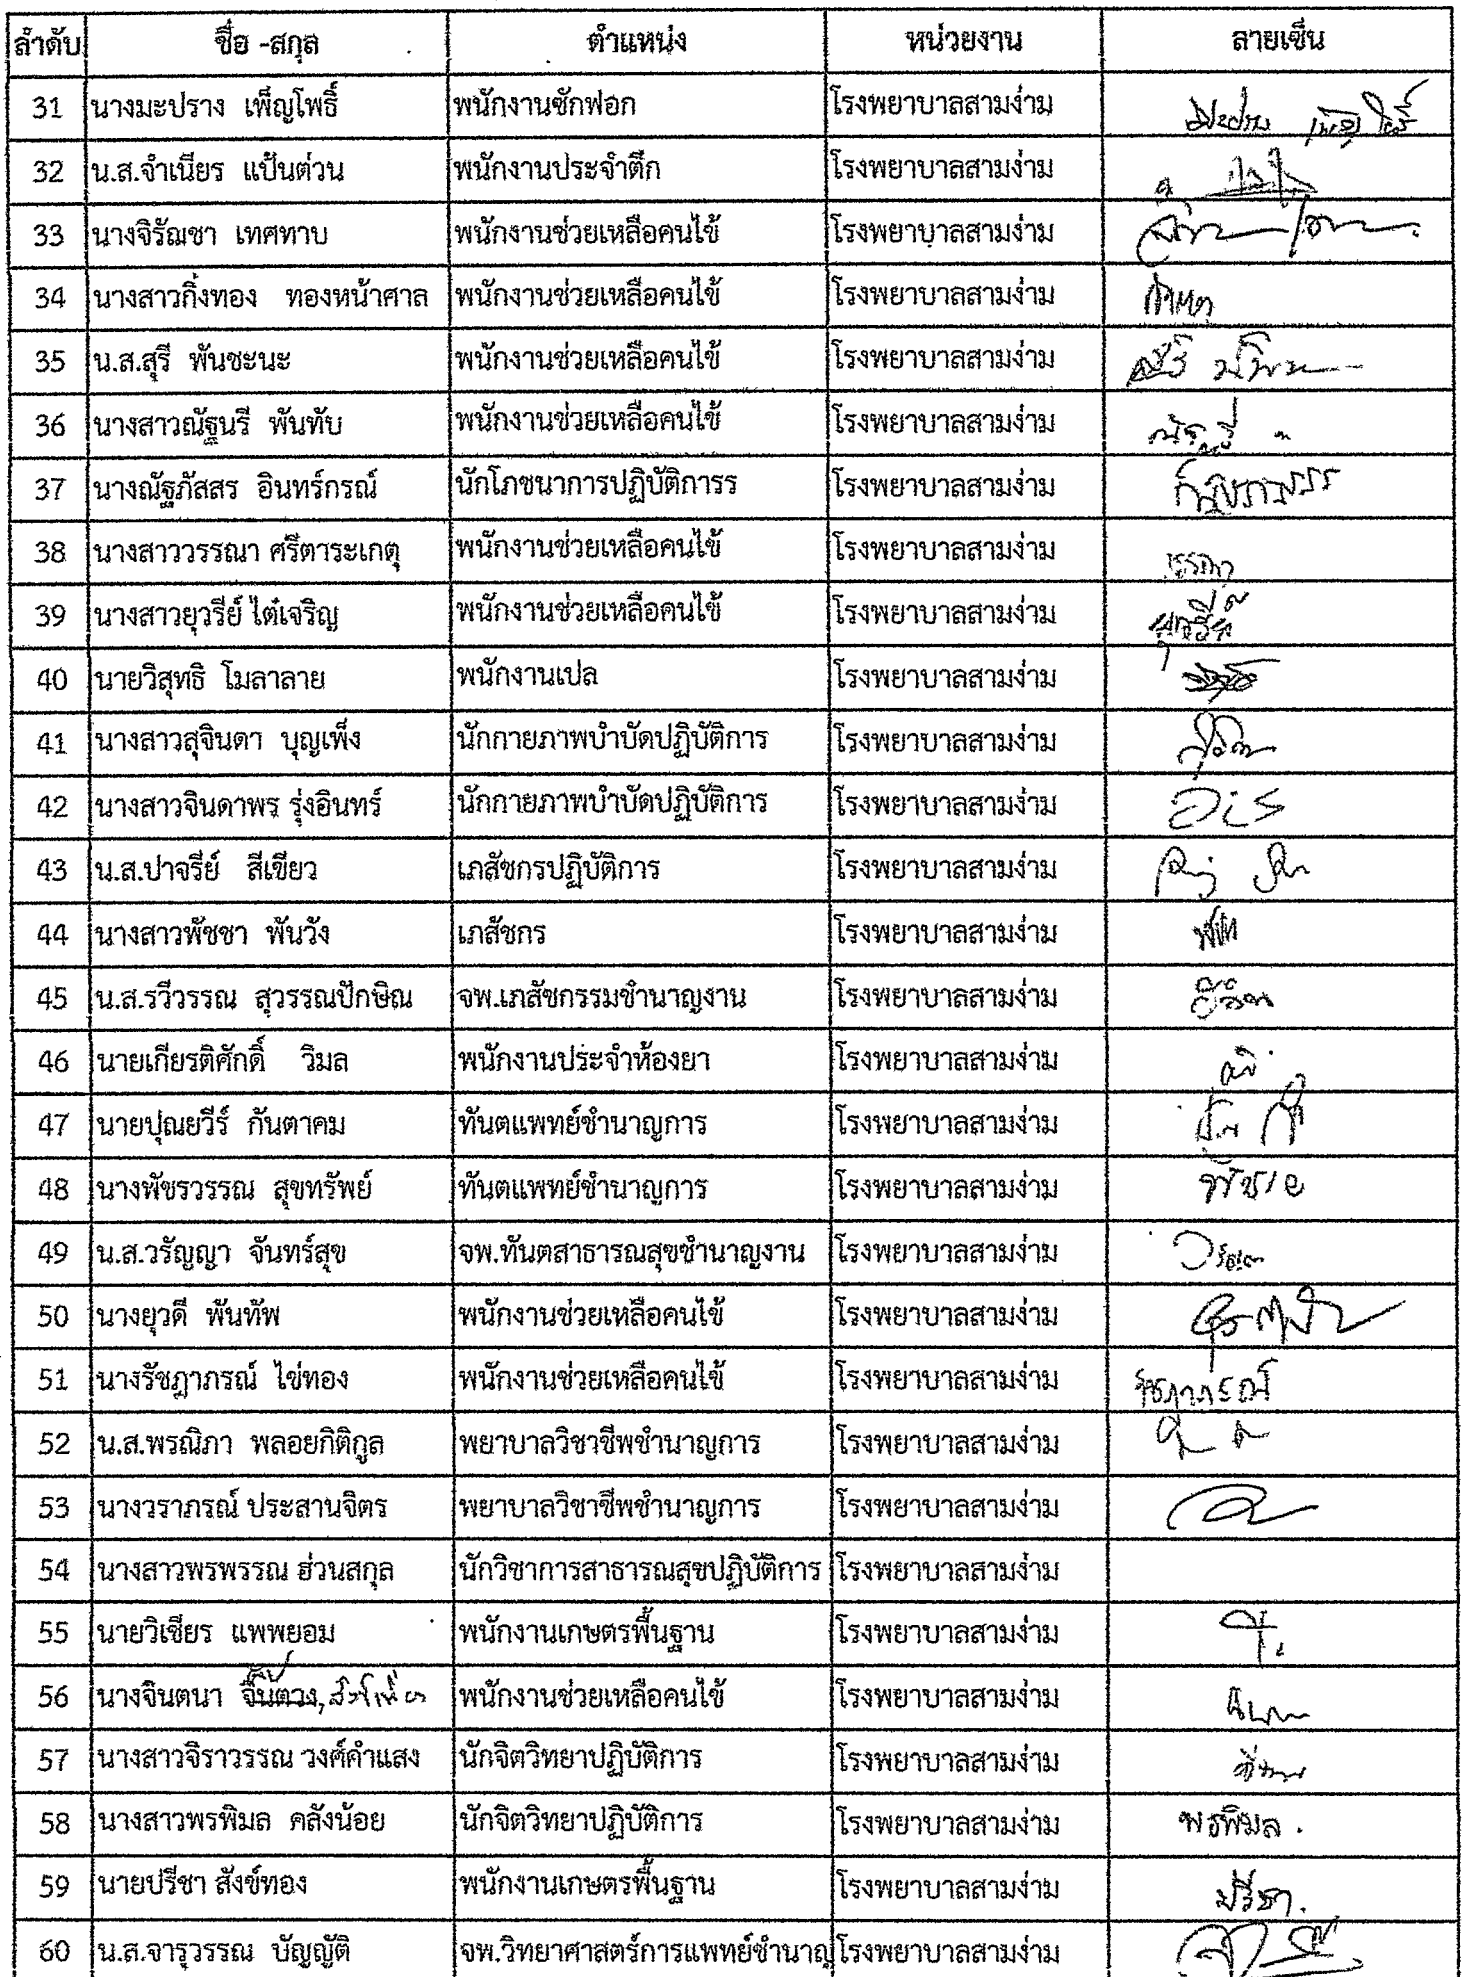 ลำดับ ชื่อ -สกุล ตำแหน่ง หน่วยงาน ลายเซ็น
31 นางมะปราง เพ็ญโพธิ์ พนักงานซักฟอก โรงพยาบาลสามง่าม
32 น.ส.จำเนียร แป้นต่วน พนักงานประจำตึก โรงพยาบาลสามง่าม
33 นางจิรัณชา เทศทาบ พนักงานช่วยเหลือคนไข้ โรงพยาบาลสามง่าม
34 นางสาวกิ่งทอง ทองหน้าศาล พนักงานช่วยเหลือคนไข้ โรงพยาบาลสามง่าม
35 น.ส.สุรี พันชะนะ พนักงานช่วยเหลือคนไข้ โรงพยาบาลสามง่าม
36 นางสาวณัฐนรี พันทับ พนักงานช่วยเหลือคนไข้ โรงพยาบาลสามง่าม
37 นางณัฐภัสสร อินทร์กรณ์ นักโภชนาการปฏิบัติการร โรงพยาบาลสามง่าม
38 นางสาววรรณา ศรีตาระเกตุ พนักงานช่วยเหลือคนไข้ โรงพยาบาลสามง่าม
39 นางสาวยุวรีย์ ไต๋เจริญ พนักงานช่วยเหลือคนไข้ โรงพยาบาลสามง่าม
40 นายวิสุทธิ โมลาลาย พนักงานเปล โรงพยาบาลสามง่าม
41 นางสาวสุจินดา บุญเพ็ง นักกายภาพบำบัดปฏิบัติการ โรงพยาบาลสามง่าม
42 นางสาวจินดาพร รุ่งอินทร์ นักกายภาพบำบัดปฏิบัติการ โรงพยาบาลสามง่าม
43 น.ส.ปาจรีย์ สีเขียว เภสัชกรปฏิบัติการ โรงพยาบาลสามง่าม
44 นางสาวพัชชา พันวัง เภสัชกร โรงพยาบาลสามง่าม
45 น.ส.รวีวรรณ สุวรรณปักษิณ จพ.เภสัชกรรมชำนาญงาน โรงพยาบาลสามง่าม
46 นายเกียรติศักดิ์ วิมล พนักงานประจำห้องยา โรงพยาบาลสามง่าม
47 นายปุณยวีร์ กันตาคม ทันตแพทย์ชำนาญการ โรงพยาบาลสามง่าม
48 นางพัชรวรรณ สุขทรัพย์ ทันตแพทย์ชำนาญการ โรงพยาบาลสามง่าม
49 น.ส.วรัญญา จันทร์สุข จพ.ทันตสาธารณสุขชำนาญงาน โรงพยาบาลสามง่าม
50 นางยุวดี พันทัพ พนักงานช่วยเหลือคนไข้ โรงพยาบาลสามง่าม
51 นางรัชฎาภรณ์ ไข่ทอง พนักงานช่วยเหลือคนไข้ โรงพยาบาลสามง่าม รัชฎาภรณ์
52 น.ส.พรณิภา พลอยกิติกูล พยาบาลวิชาชีพชำนาญการ โรงพยาบาลสามง่าม
53 นางวราภรณ์ ประสานจิตร พยาบาลวิชาชีพชำนาญการ โรงพยาบาลสามง่าม
54 นางสาวพรพรรณ ฮ่วนสกุล นักวิชาการสาธารณสุขปฏิบัติการ โรงพยาบาลสามง่าม
55 นายวิเชียร แพพยอม พนักงานเกษตรพื้นฐาน โรงพยาบาลสามง่าม
56 นางจินตนา พนักงานช่วยเหลือคนไข้ โรงพยาบาลสามง่าม
57 นางสาวจิราวรรณ วงศ์คำแสง นักจิตวิทยาปฏิบัติการ โรงพยาบาลสามง่าม
58 นางสาวพรพิมล คลังน้อย นักจิตวิทยาปฏิบัติการ โรงพยาบาลสามง่าม พรพิมล .
59 นายปรีชา สังข์ทอง พนักงานเกษตรพื้นฐาน โรงพยาบาลสามง่าม ปรีชา.
60 น.ส.จารุวรรณ บัญญัติ จพ.วิทยาศาสตร์การแพทย์ชำนาญ โรงพยาบาลสามง่าม